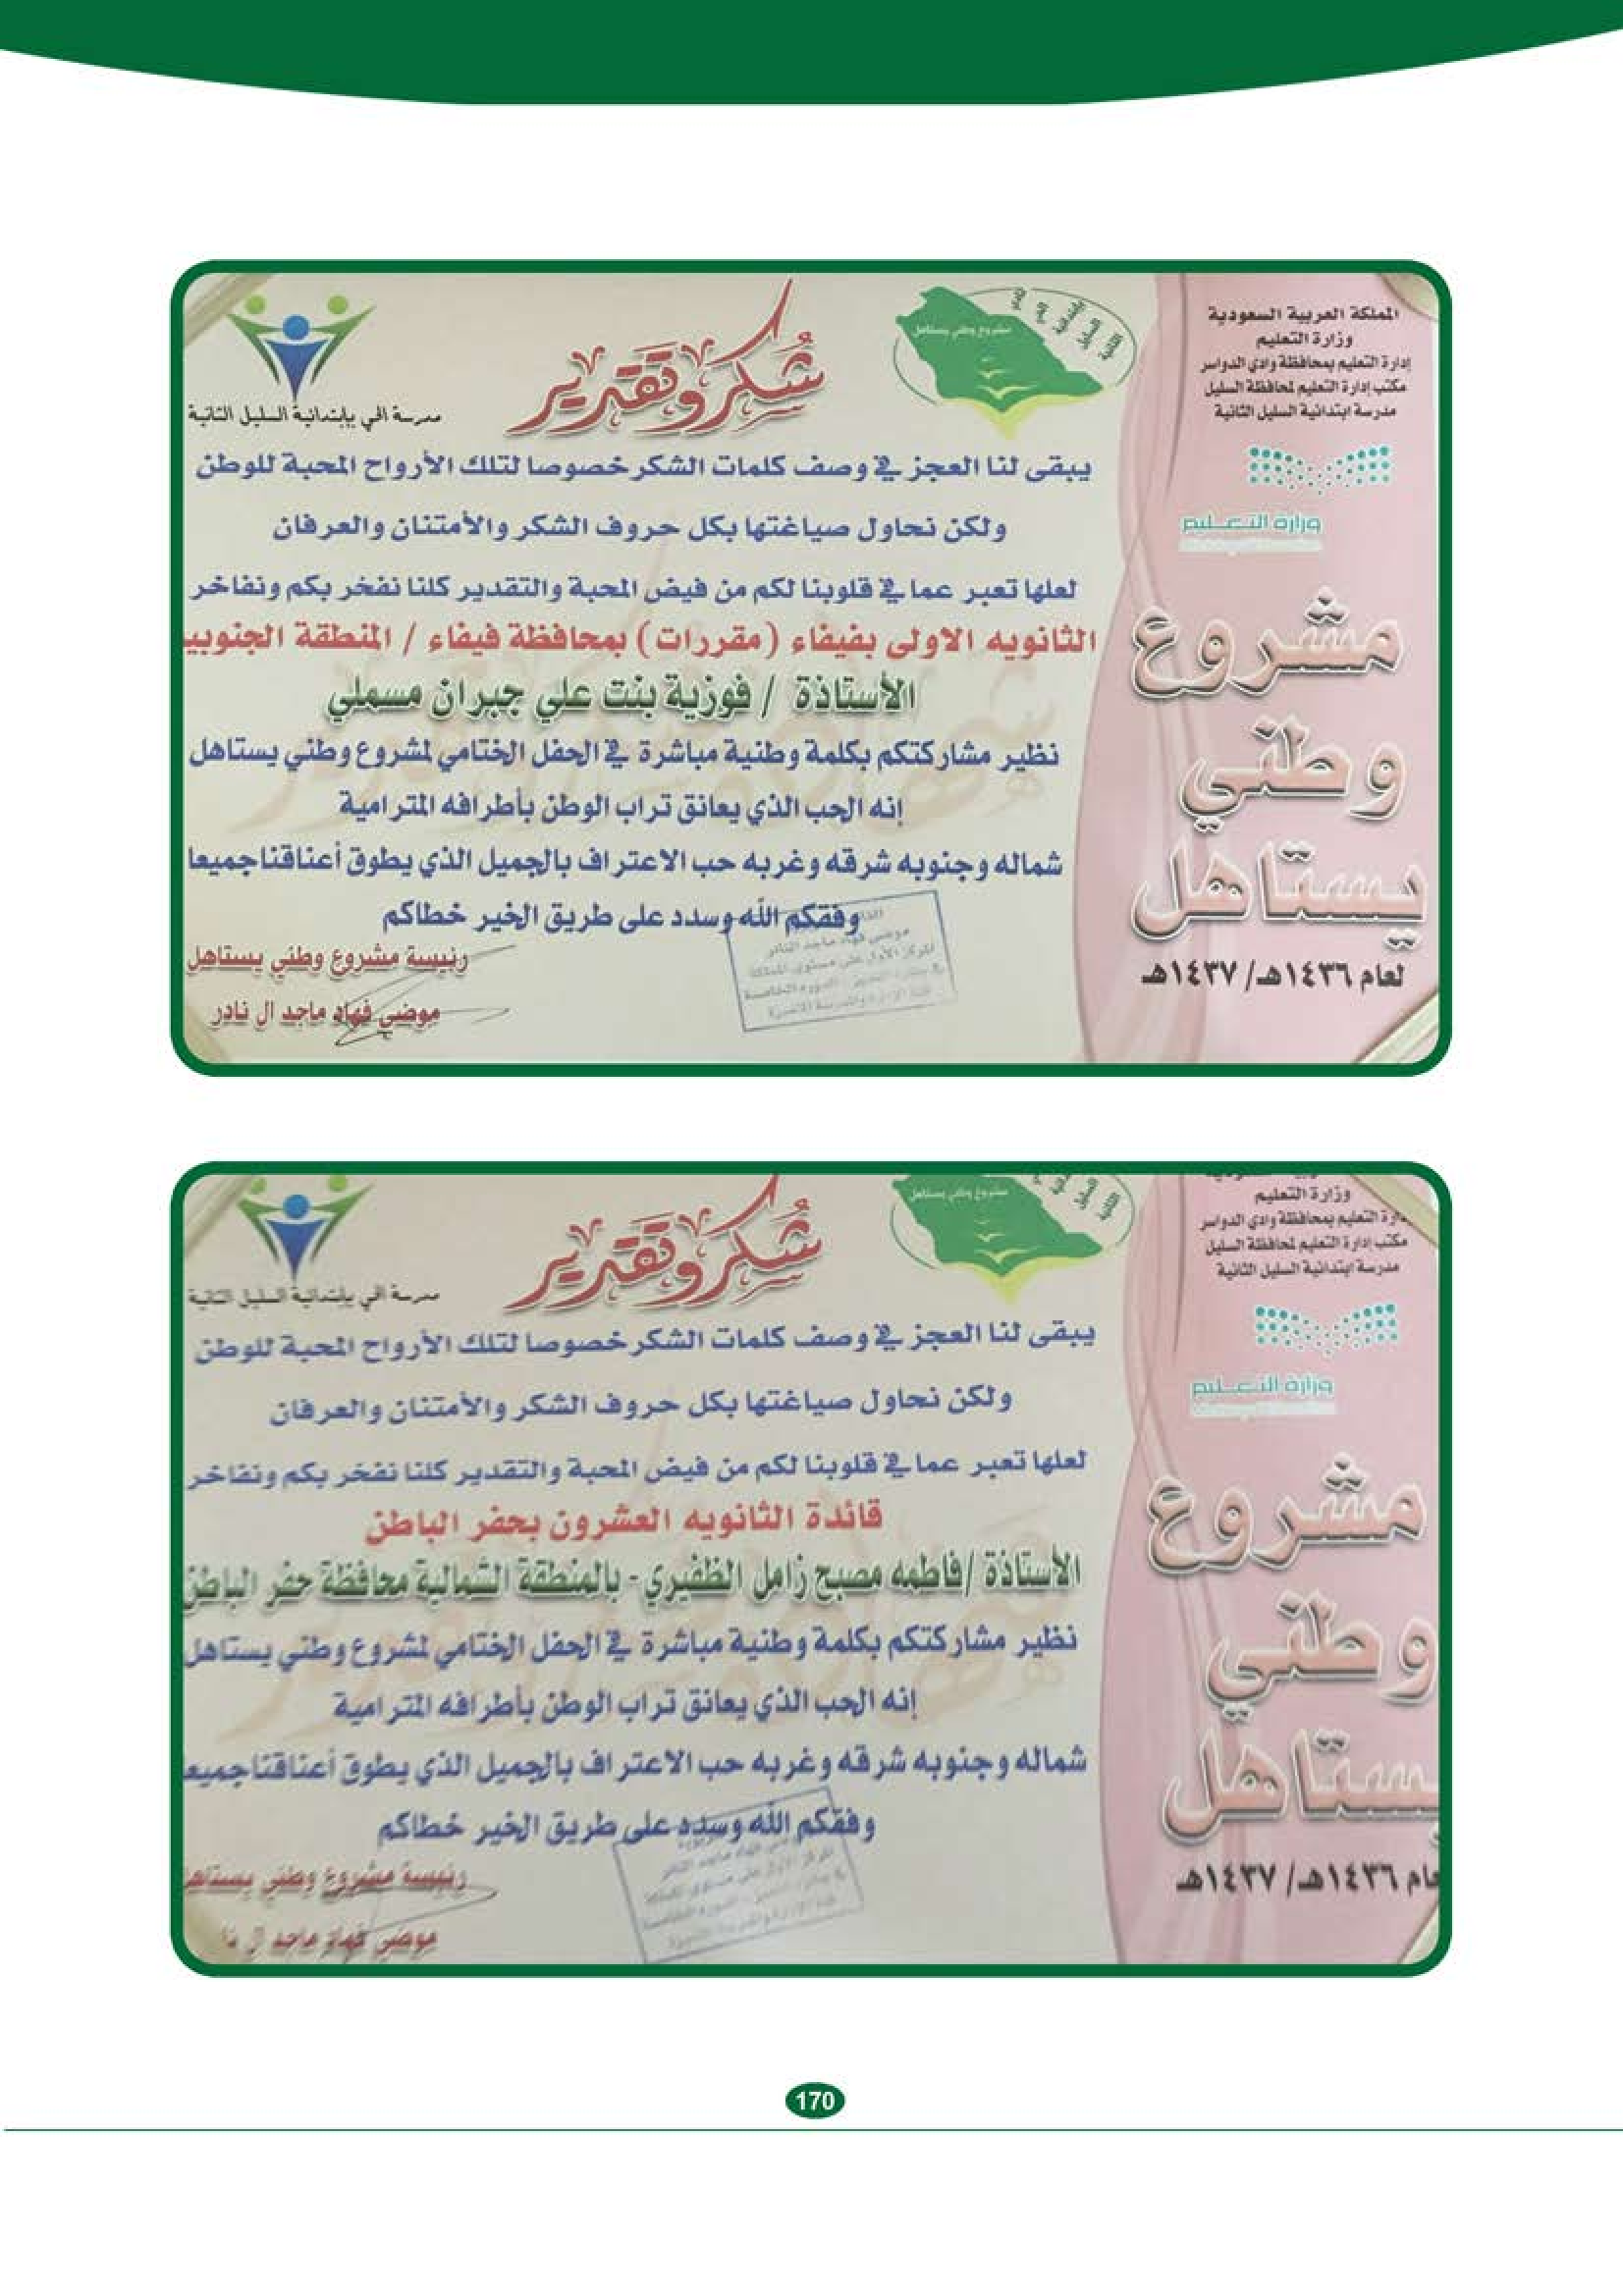 المملكة العربية السعودية
وزارة التعليم
إدارة التعليم بمحافظة وادي الدواسر
مكتب إدارة التعليم لمحافظة السليل
مدرسة ابتدائية السليل الثانية
وزارة التعليم
مشروع
وطني
يستاهل
لعام ١٤٣٦هـ/ ١٤٣٧هـ
مشروع وطني يستاهل
شكر وتقدير
مدرسة الحي بابتدائية السليل الثانية
يبقى لنا العجز في وصف كلمات الشكر خصوصا لتلك الأرواح المحبة للوطن
ولكن نحاول صياغتها بكل حروف الشكر والأمتنان والعرفان
لعلها تعبر عما في قلوبنا لكم من فيض المحبة والتقدير كلنا نفخر بكم ونفاخر
الثانويه الاولى بفيفاء (مقررات) بمحافظة فيفاء / المنطقة الجنوبي
الأستاذة / فوزية بنت علي جبران مسملي
نظير مشاركتكم بكلمة وطنية مباشرة في الحفل الختامي لمشروع وطني يستاهل
إنه الحب الذي يعانق تراب الوطن بأطرافه المترامية
شماله وجنوبه شرقه وغربه حب الاعتراف بالجميل الذي يطوق أعناقنا جميعا
وفقكم الله وسدد على طريق الخير خطاكم
موضي فهاد ماجد النادر
المركز الأول على مستوى المملكة
رئيسة مشروع وطني يستاهل
موضي فهاد ماجد ال نادر
وزارة التعليم
دارة التعليم بمحافظة وادي الدواسر
مكتب إدارة التعليم لمحافظة السليل
مدرسة ابتدائية السليل الثانية
وزارة التعليم
مشروع
وطني
يستاهل
عام ١٤٣٦هـ/ ١٤٣٧هـ
مشروع وطني يستاهل
شكر وتقدير
مدرسة الحي بابتدائية السليل الثانية
يبقى لنا العجز في وصف كلمات الشكر خصوصا لتلك الأرواح المحبة للوطن
ولكن نحاول صياغتها بكل حروف الشكر والأمتنان والعرفان
لعلها تعبر عما في قلوبنا لكم من فيض المحبة والتقدير كلنا نفخر بكم ونفاخر
قائدة الثانويه العشرون بحفر الباطن
الأستاذة /فاطمه مصبح زامل الظفيري - بالمنطقة الشمالية محافظة حفر الباطن
نظير مشاركتكم بكلمة وطنية مباشرة في الحفل الختامي لمشروع وطني يستاهل
إنه الحب الذي يعانق تراب الوطن بأطرافه المترامية
شماله وجنوبه شرقه وغربه حب الاعتراف بالجميل الذي يطوق أعناقنا جميعا
وفقكم الله وسدد على طريق الخير خطاكم
رئيسة مشروع وطني يستاهل
موضي فهاد ماجد ال نا
170